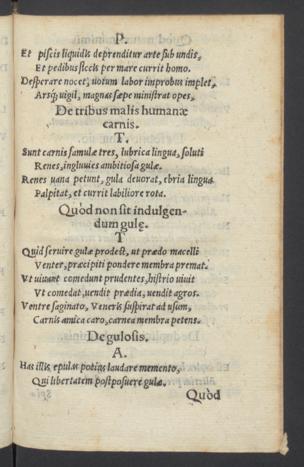 P.
Et piscis liquidis deprenditur arte sub undis,
Et pedibus siccis per mare currit homo.
Desperare nocet, uotum labor improbus implet,
Arsq; uigil, magnas sæpe ministrat opes.
De tribus malis humanæ
carnis.
T.
Sunt carnis famulæ tres, lubrica lingua, soluti
Renes, ingluuies ambitiosa gulæ.
Renes uana petunt, gula deuorat, ebria lingua
Palpitat, et currit labiliore rota.
Quòd non sit indulgen-
dum gulę.
T
Quid seruire gulæ prodest, ut prædo macelli
Venter, præcipiti pondere membra premat.
Vt uiuant comedunt prudentes, histrio uiuit
Vt comedat, uendit prædia, uendit agros.
Ventre saginato, Veneris suspirat ad usum,
Carnis amica caro, carnea membra petens.
De gulosis.
A.
Has illis epulas potius laudare memento,
Qui libertatem postposuere gulæ.
Quòd